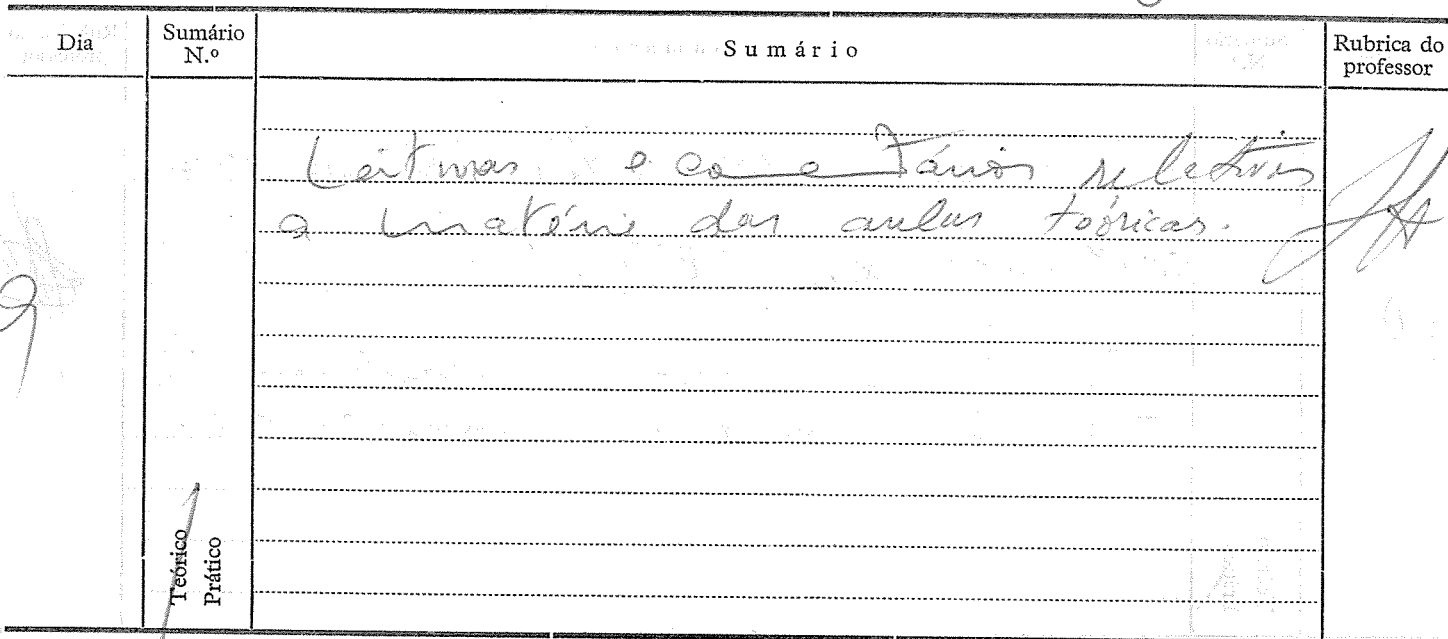 Dia
Sumário
N.º
Sumário
Rubrica do
professor
Leituras e comentários relativos
a matéria das aulas teóricas.
9
Teórico
Prático